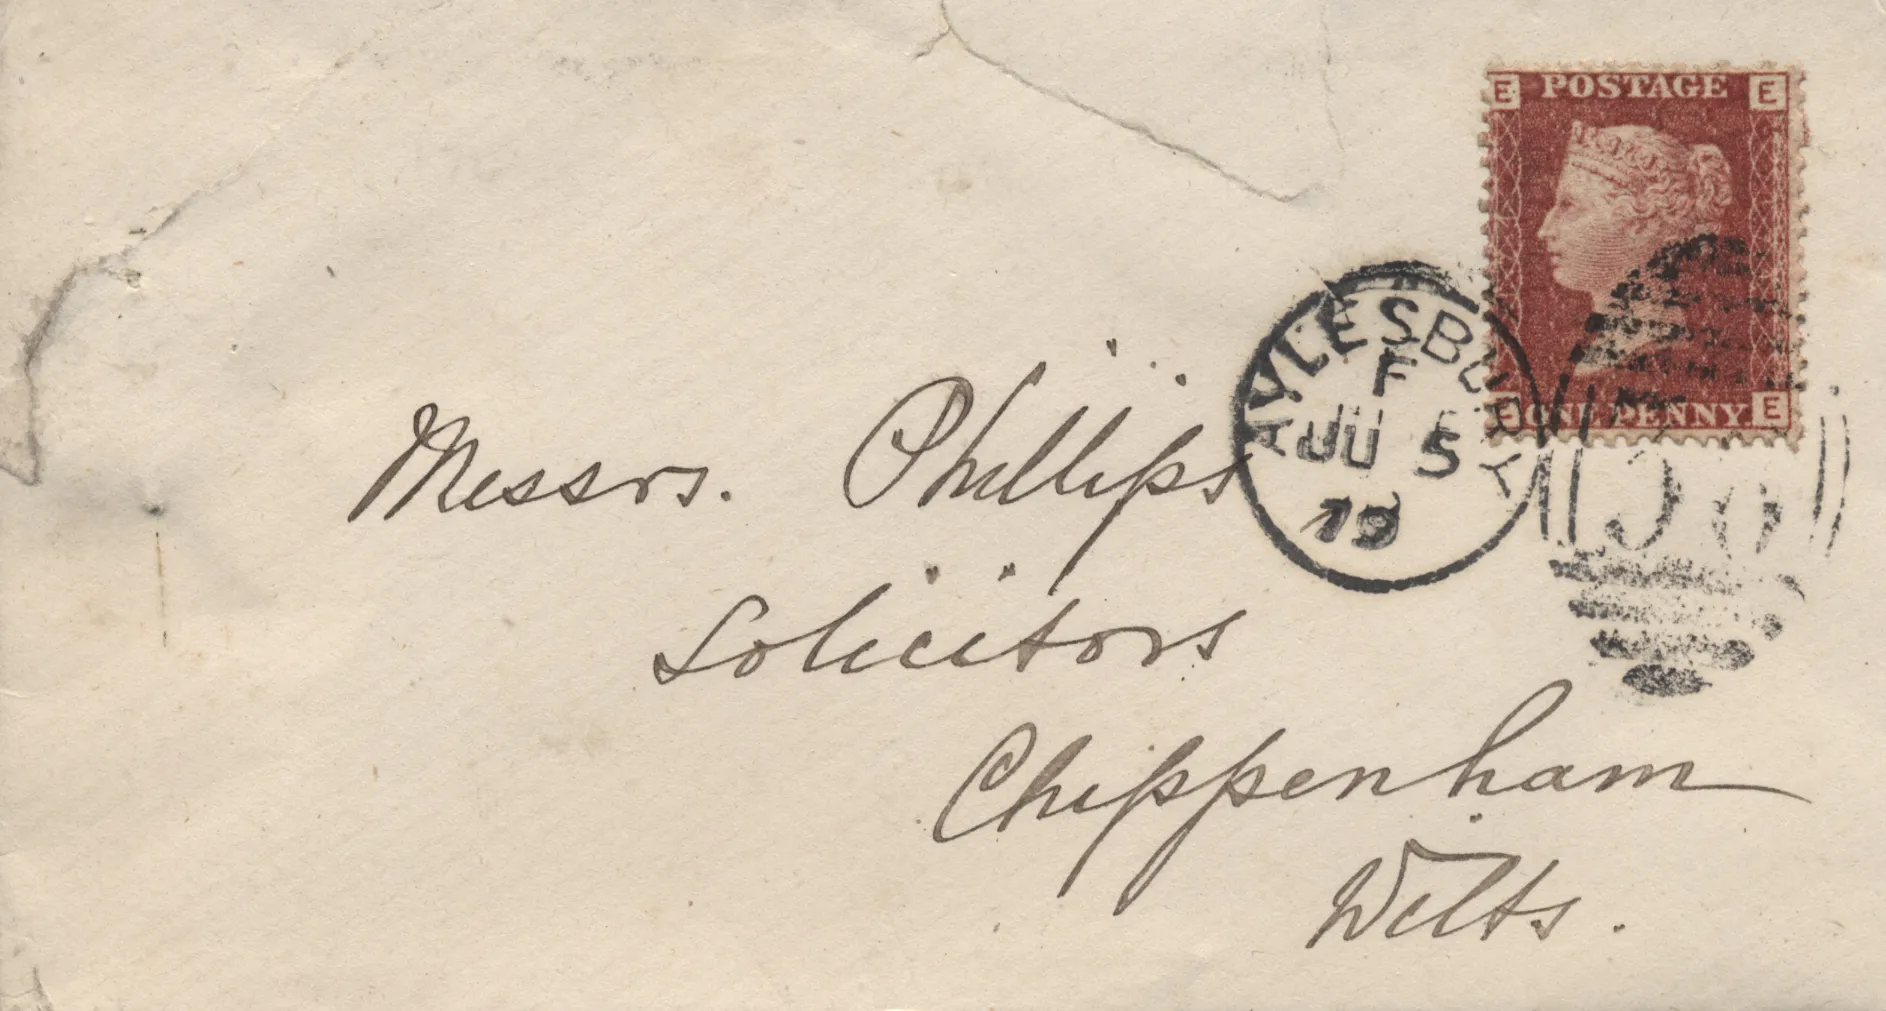 E POSTAGE E
E ONE PENNY. E
AYLESBURY
F
JU 5
79
Messrs. Phillips
Solicitors
Chippenham
Wilts.